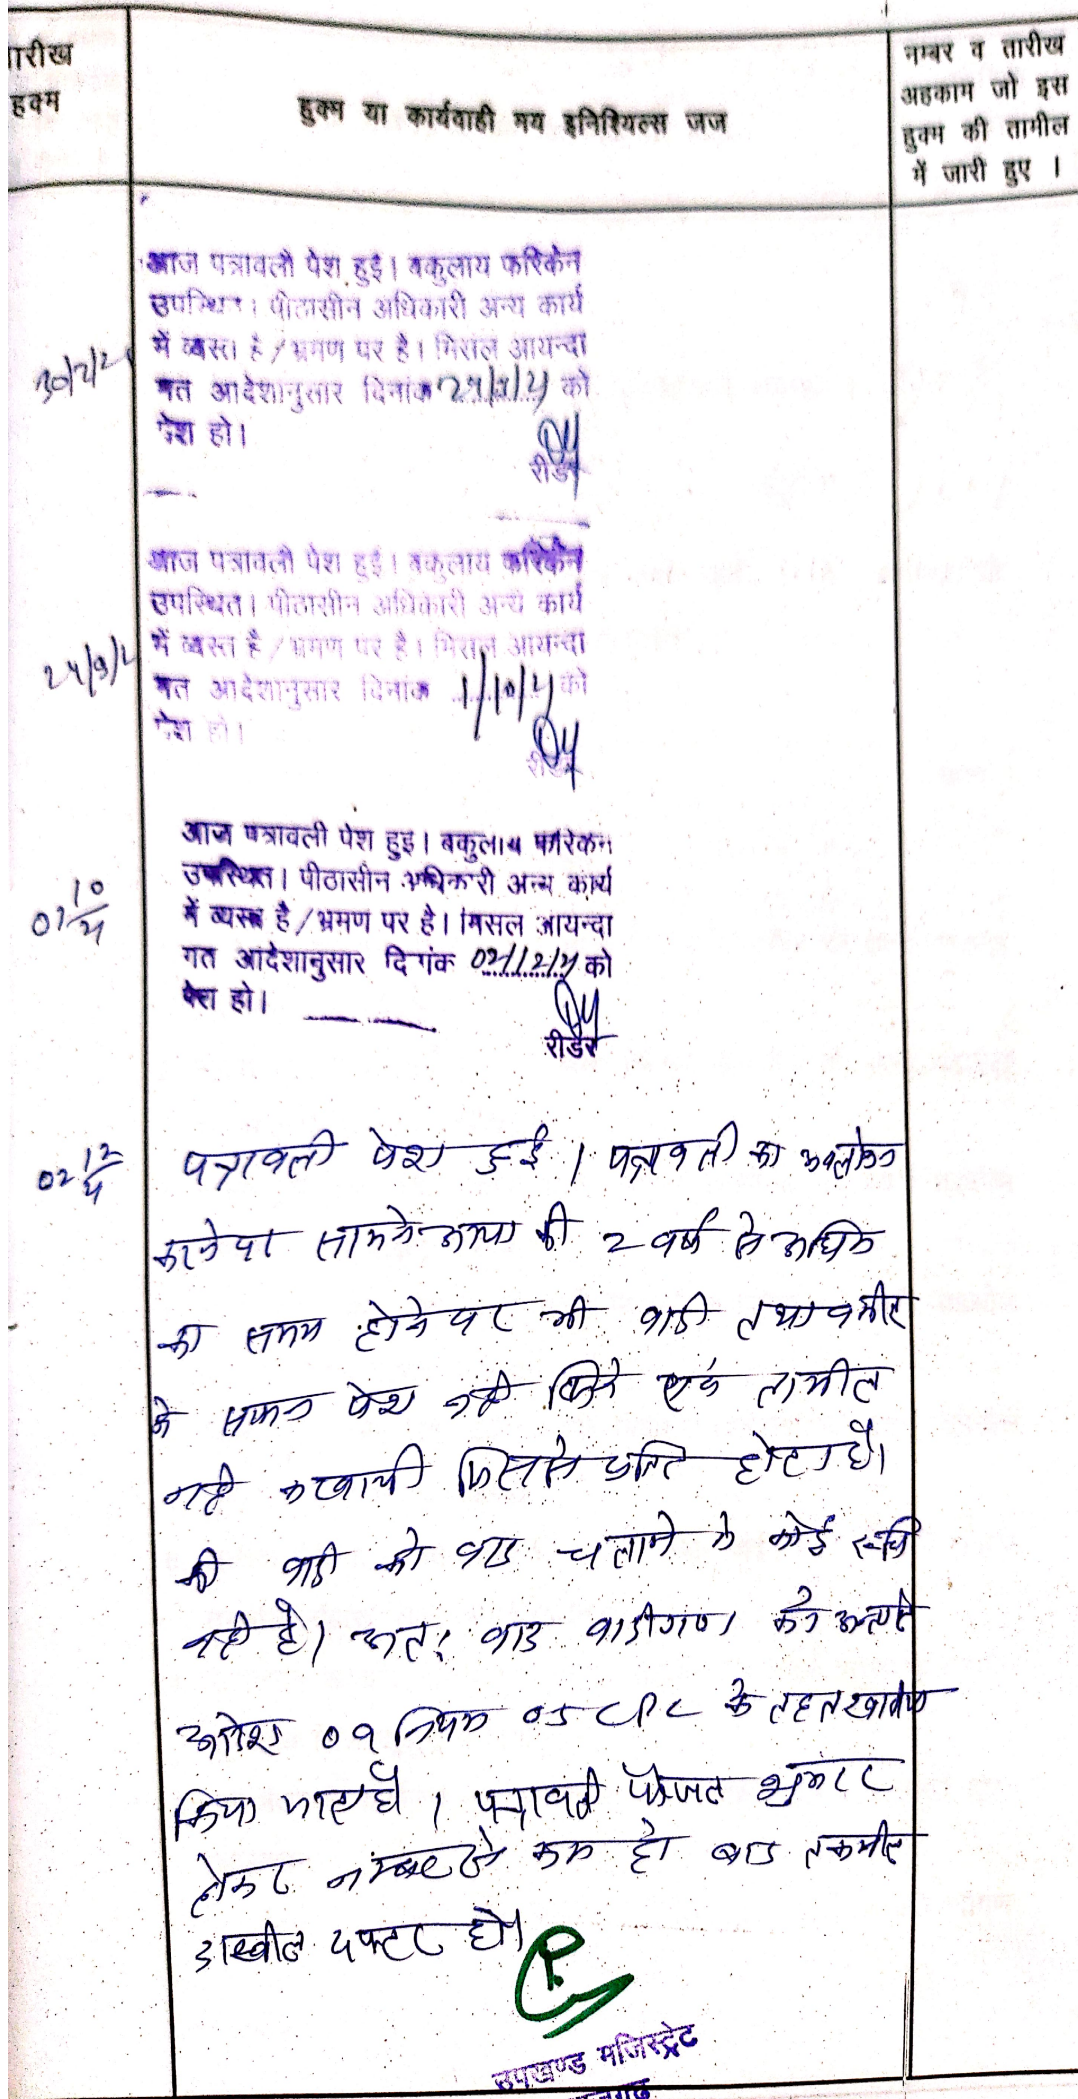 तारीख
हुक्म
हुक्म या कार्यवाही मय इनिशियल्स जज
नम्बर व तारीख
अहकाम जो इस
हुक्म की तामील
में जारी हुए ।
आज पत्रावली पेश हुई। वकुलाय फरिकेन
उपस्थित। पीठासीन अधिकारी अन्य कार्य
में व्यस्त है / भ्रमण पर है। मिसल आयन्दा
गत आदेशानुसार दिनांक को
पेश हो।
रीडर
आज पत्रावली पेश हुई। वकुलाय फरिकेन
उपस्थित। पीठासीन अधिकारी अन्य कार्य
में व्यस्त है / भ्रमण पर है। मिसल आयन्दा
गत आदेशानुसार दिनांक 1/10/24 को
पेश हो।
रीडर
आज पत्रावली पेश हुई। वकुलाय फरिकेन
उपस्थित। पीठासीन अधिकारी अन्य कार्य
में व्यस्त है / भ्रमण पर है। मिसल आयन्दा
गत आदेशानुसार दिनांक 02/12/24 को
पेश हो।
रीडर
02 12/24 पत्रावली पेश हुई । पत्रावली का अवलोकन
करने पर सामने आया की 2 वर्ष से अधिक
का समय होने पर भी वादी तथा वकील
के पेश नही किये एवं तामील
नही करवायी जिससे प्रतित होता है।
की वादी को वाद चलाने मे कोई रूचि
नही है। अतः वाद वादीगण का अन्तर्गत
आदेश 09 नियम 05 CPC के तहत खारिज
किया जाता है । पत्रावली फैसल शुमार
होकर नम्बर से कम हो बाद तकमील
दाखील दफ्टर हो।
उपखण्ड मजिस्ट्रेट